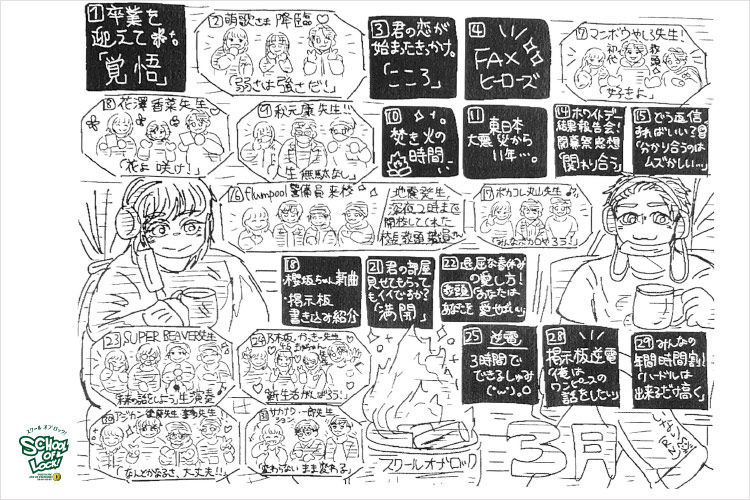 1 卒業を
迎えて。
「覚悟」
2 萌歌さま 降臨♡
「弱さは強さだ!」
3 君の恋が
始まったきっかけ。
「こころ」
4
FAX
ヒーローズ
7 マンボウやしろ先生!
初代
教頭
「好きよ」
8 花澤香菜先生
「花よ 咲け!」
9 秋元康先生!!
「人生無駄なし」
10
焚き火の
時間
11
東日本
大震災から
11年…。
14 ホワイトデー
結果報告会!
閉幕祭感想
「関わり合う」
15 どう返信
すればいい?
「分かり合うのは
ムズかしい…」
16 flumpool 警備員来校
地震発生
深夜2時まで
開校してくれた
校長教頭職員さん
17 ボカコレ丸山先生
「みんなボカロやろう!」
18
・櫻坂ちゃん新曲
・掲示板
書き込み紹介
21 君の部屋
見せてもらって
もイイですか?
「満開」
22 退屈な春休み
の愛し方!
教頭 あなたは
あなたを 愛せばいい。
23 SUPER BEAVER先生
生演奏
24 乃木坂
「新生活がんばろう!」
25 逆電
3時間で
できるしゃみ
28
掲示板逆電
「俺は
ワンピースの
話をしたい」
29 みんなの
年間時間割!
「ハードルは
出来るだけ高く」
アジカン 後藤先生 喜多先生
「なんとかなるさ、大丈夫!!」
サカナクション 一郎先生
「変わらないまま変わる」
スクールオブロック
3月
スクール オブ ロック!
SCHOOL
OF
LOCK!